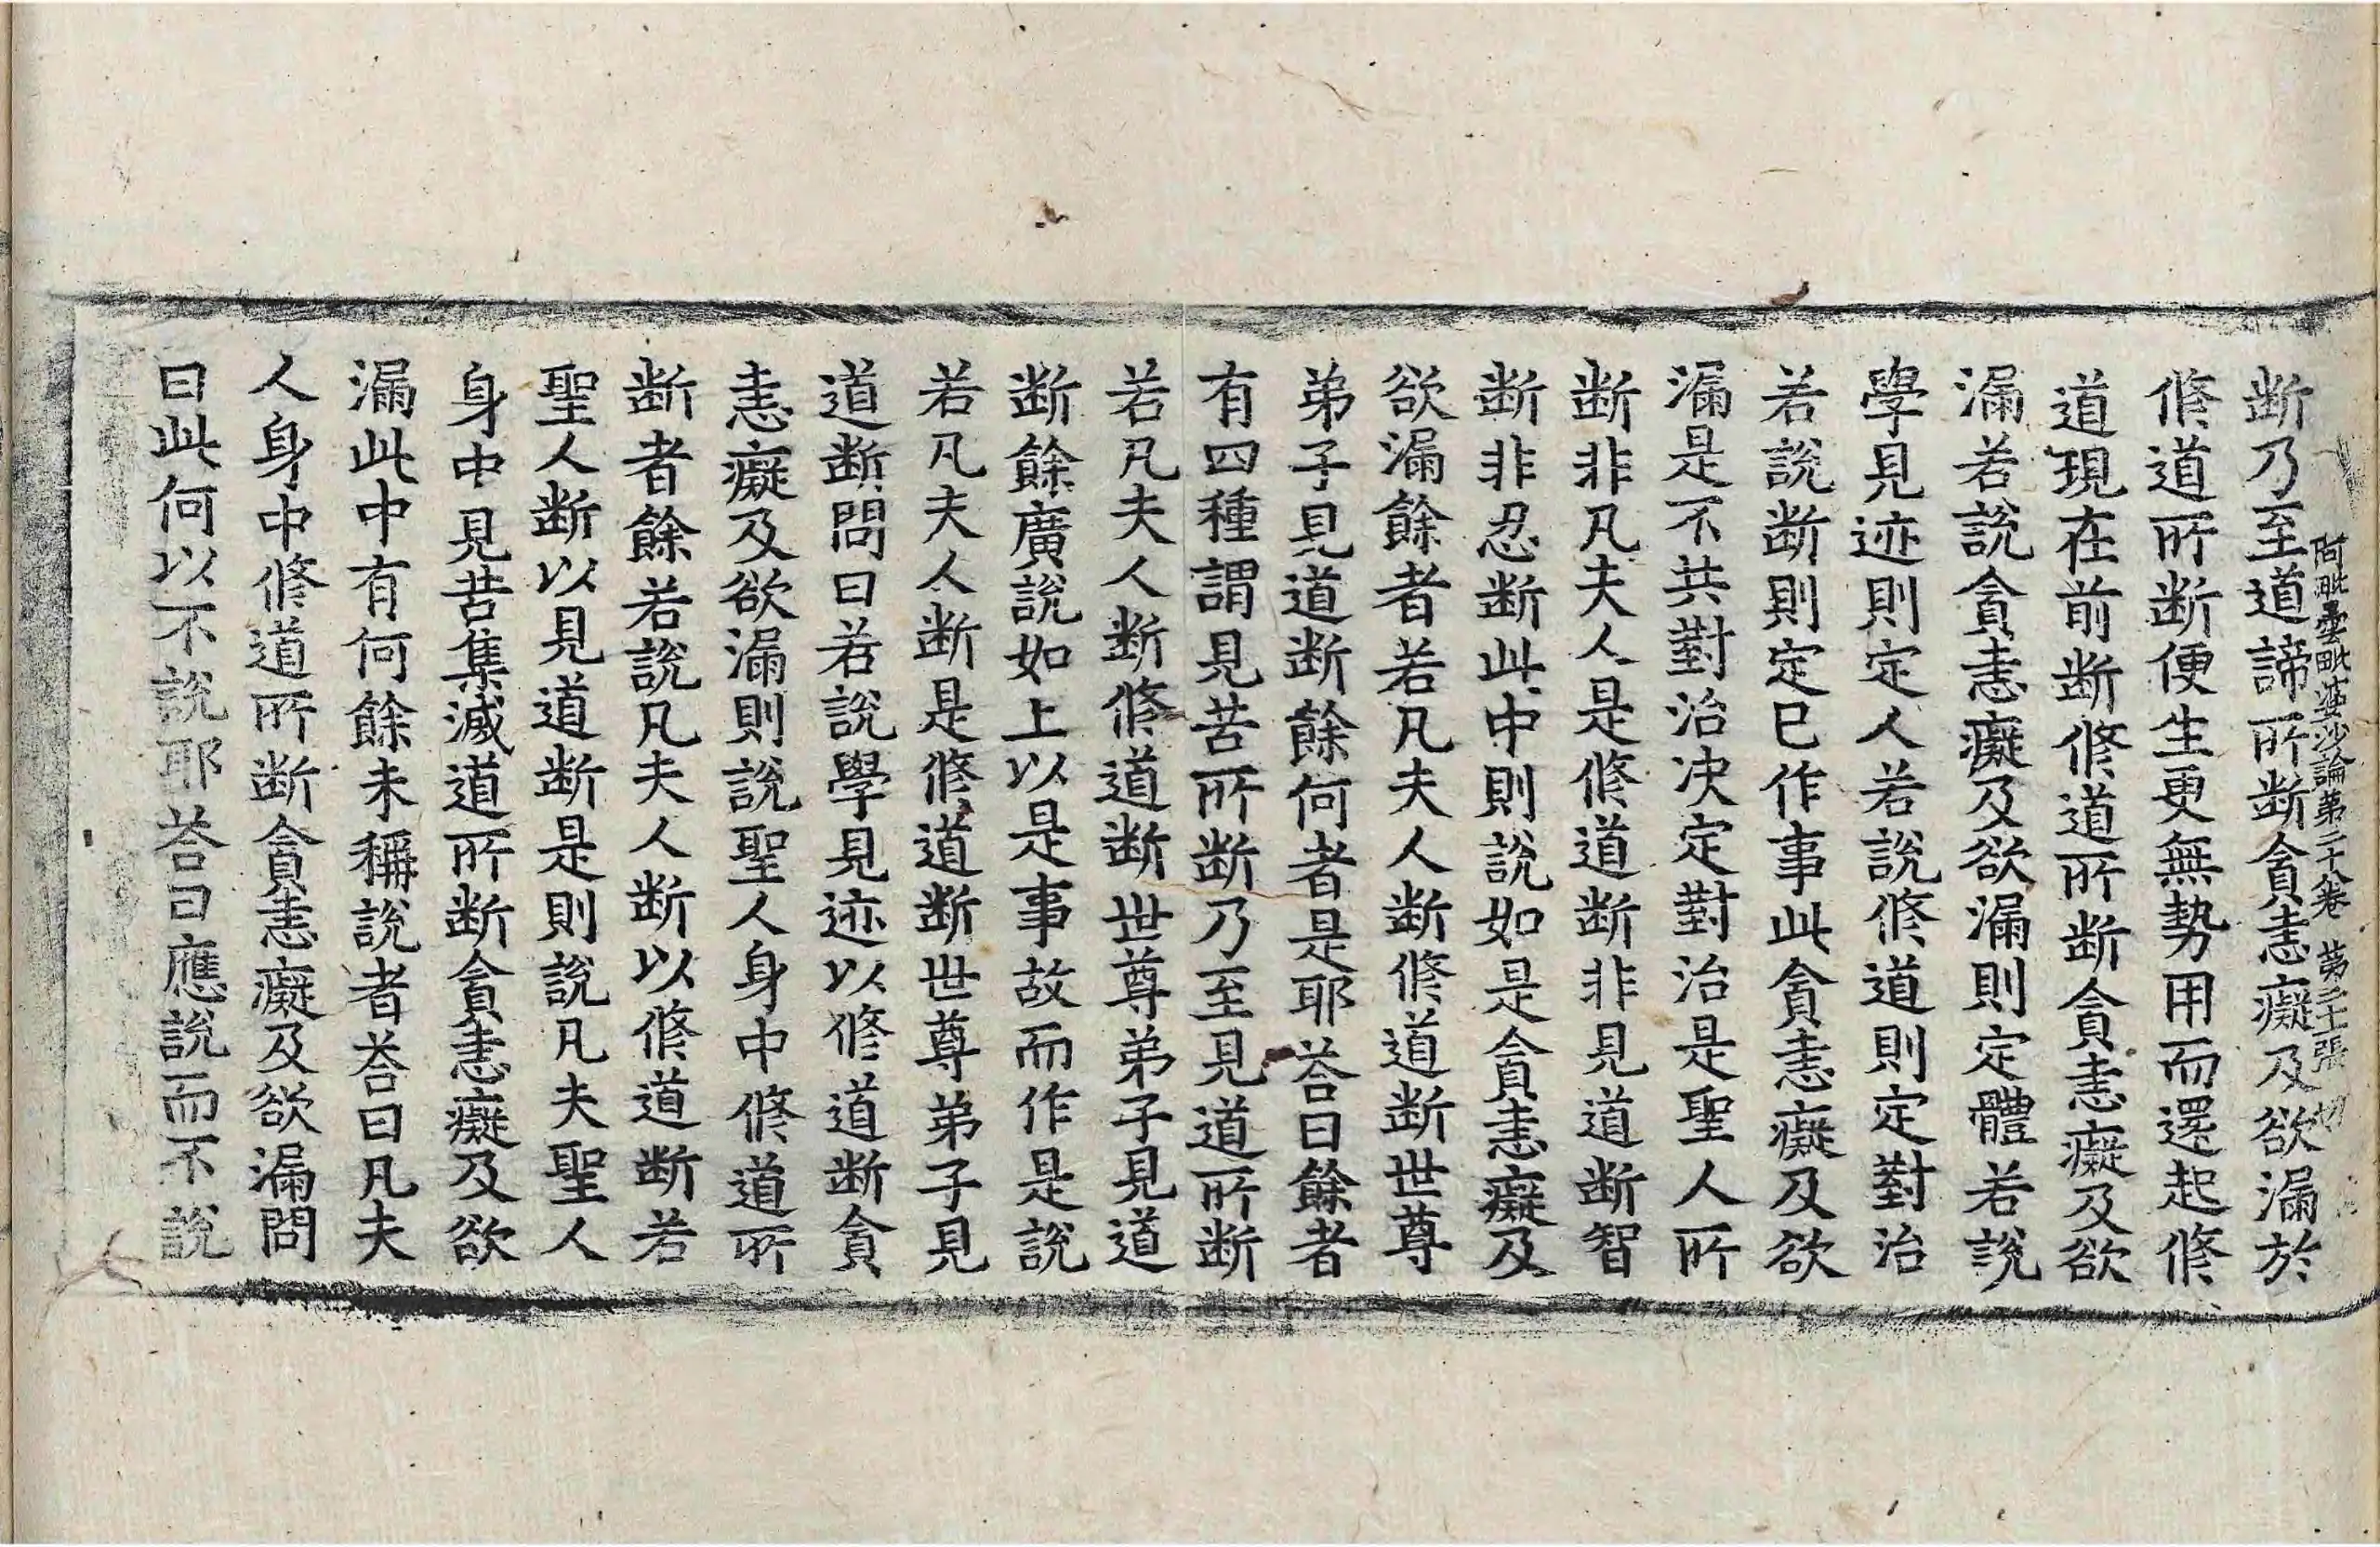 阿毗曇毗婆沙論第二十八卷 第二十張 切
断乃至道諦所断貪恚癡及欲漏於
修道所断便生更無勢用而還起修
道現在前断修道所断貪恚癡及欲
漏若說貪恚癡及欲漏則定體若說
學見迹則定人若說修道則定對治
若說断則定已作事此貪恚癡及欲
漏是不共對治決定對治是聖人所
断非凡夫人是修道断非見道断智
断非忍断此中則說如是貪恚癡及
欲漏餘者若凡夫人断修道断世尊
弟子見道断餘何者是耶荅曰餘者
有四種謂見苦所断乃至見道所断
若凡夫人断修道断世尊弟子見道
断餘廣說如上以是事故而作是說
若凡夫人断是修道断世尊弟子見
道断問曰若說學見迹以修道断貪
恚癡及欲漏則說聖人身中修道所
断者餘若說凡夫人断以修道断若
聖人断以見道断是則說凡夫聖人
身中見苦集滅道所断貪恚癡及欲
漏此中有何餘未稱說者荅曰凡夫
人身中修道所断貪恚癡及欲漏問
曰此何以不說耶荅曰應說而不說